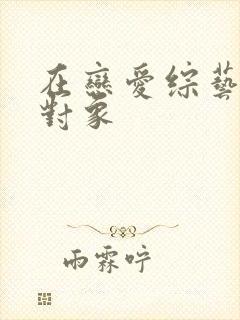 在戀愛綜藝
對象
雨霖咛